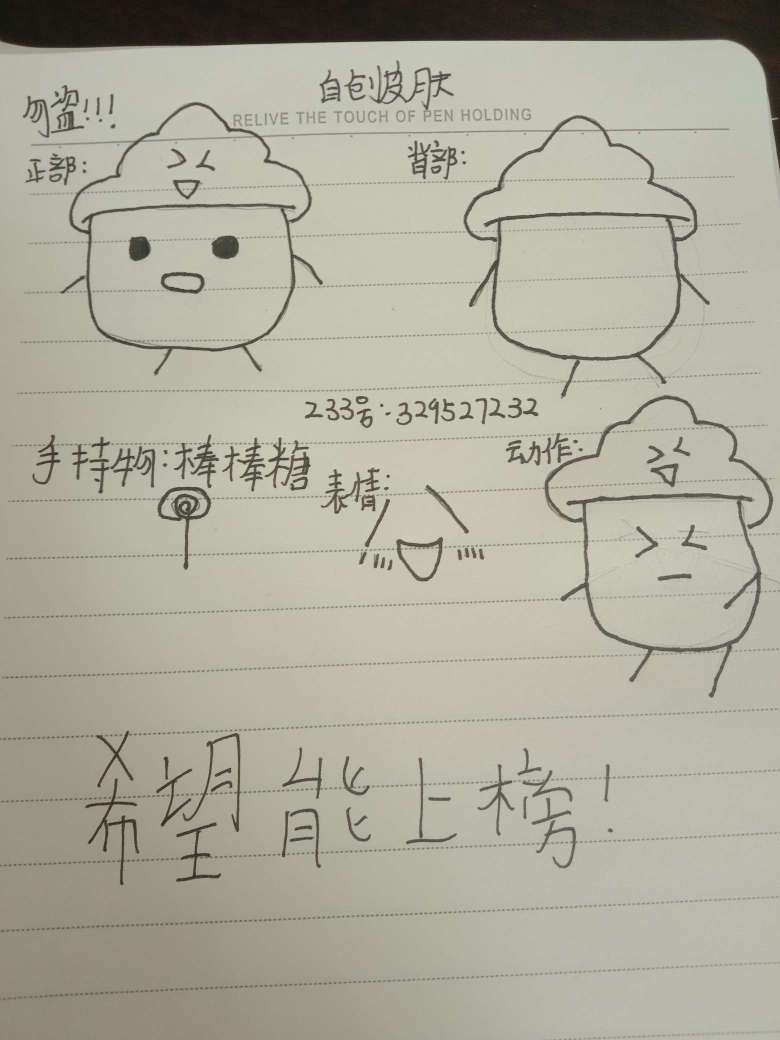 自创皮肤
勿盗!!!
RELIVE THE TOUCH OF PEN HOLDING
正部:
背部:
233号:329527232
手持物:棒棒糖
表情:
动作:
希望能上榜!